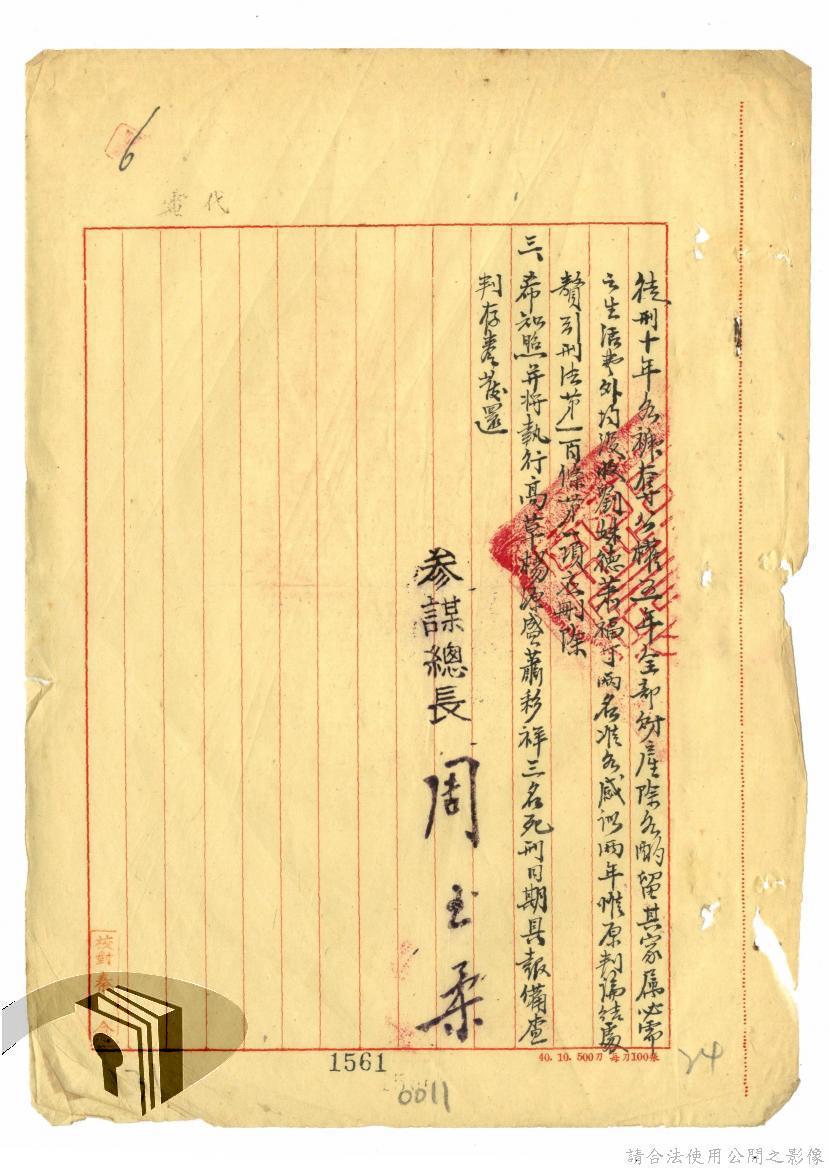 6
代電
徒刑十年各褫奪公權五年全部財產除各酌留其家屬必需
之生活費外均沒收劉妹德蕭福丁兩名准各感訓兩年惟原判論結處
贅引刑法第一百條第一項應刪除
三、希知照并將執行高草楊源盛蕭彩祥三名死刑日期具報備查
判存卷發還
參謀總長 周至柔
校對
1561
40. 10. 500刀 每刀100張
24
0011
請合法使用公開之影像